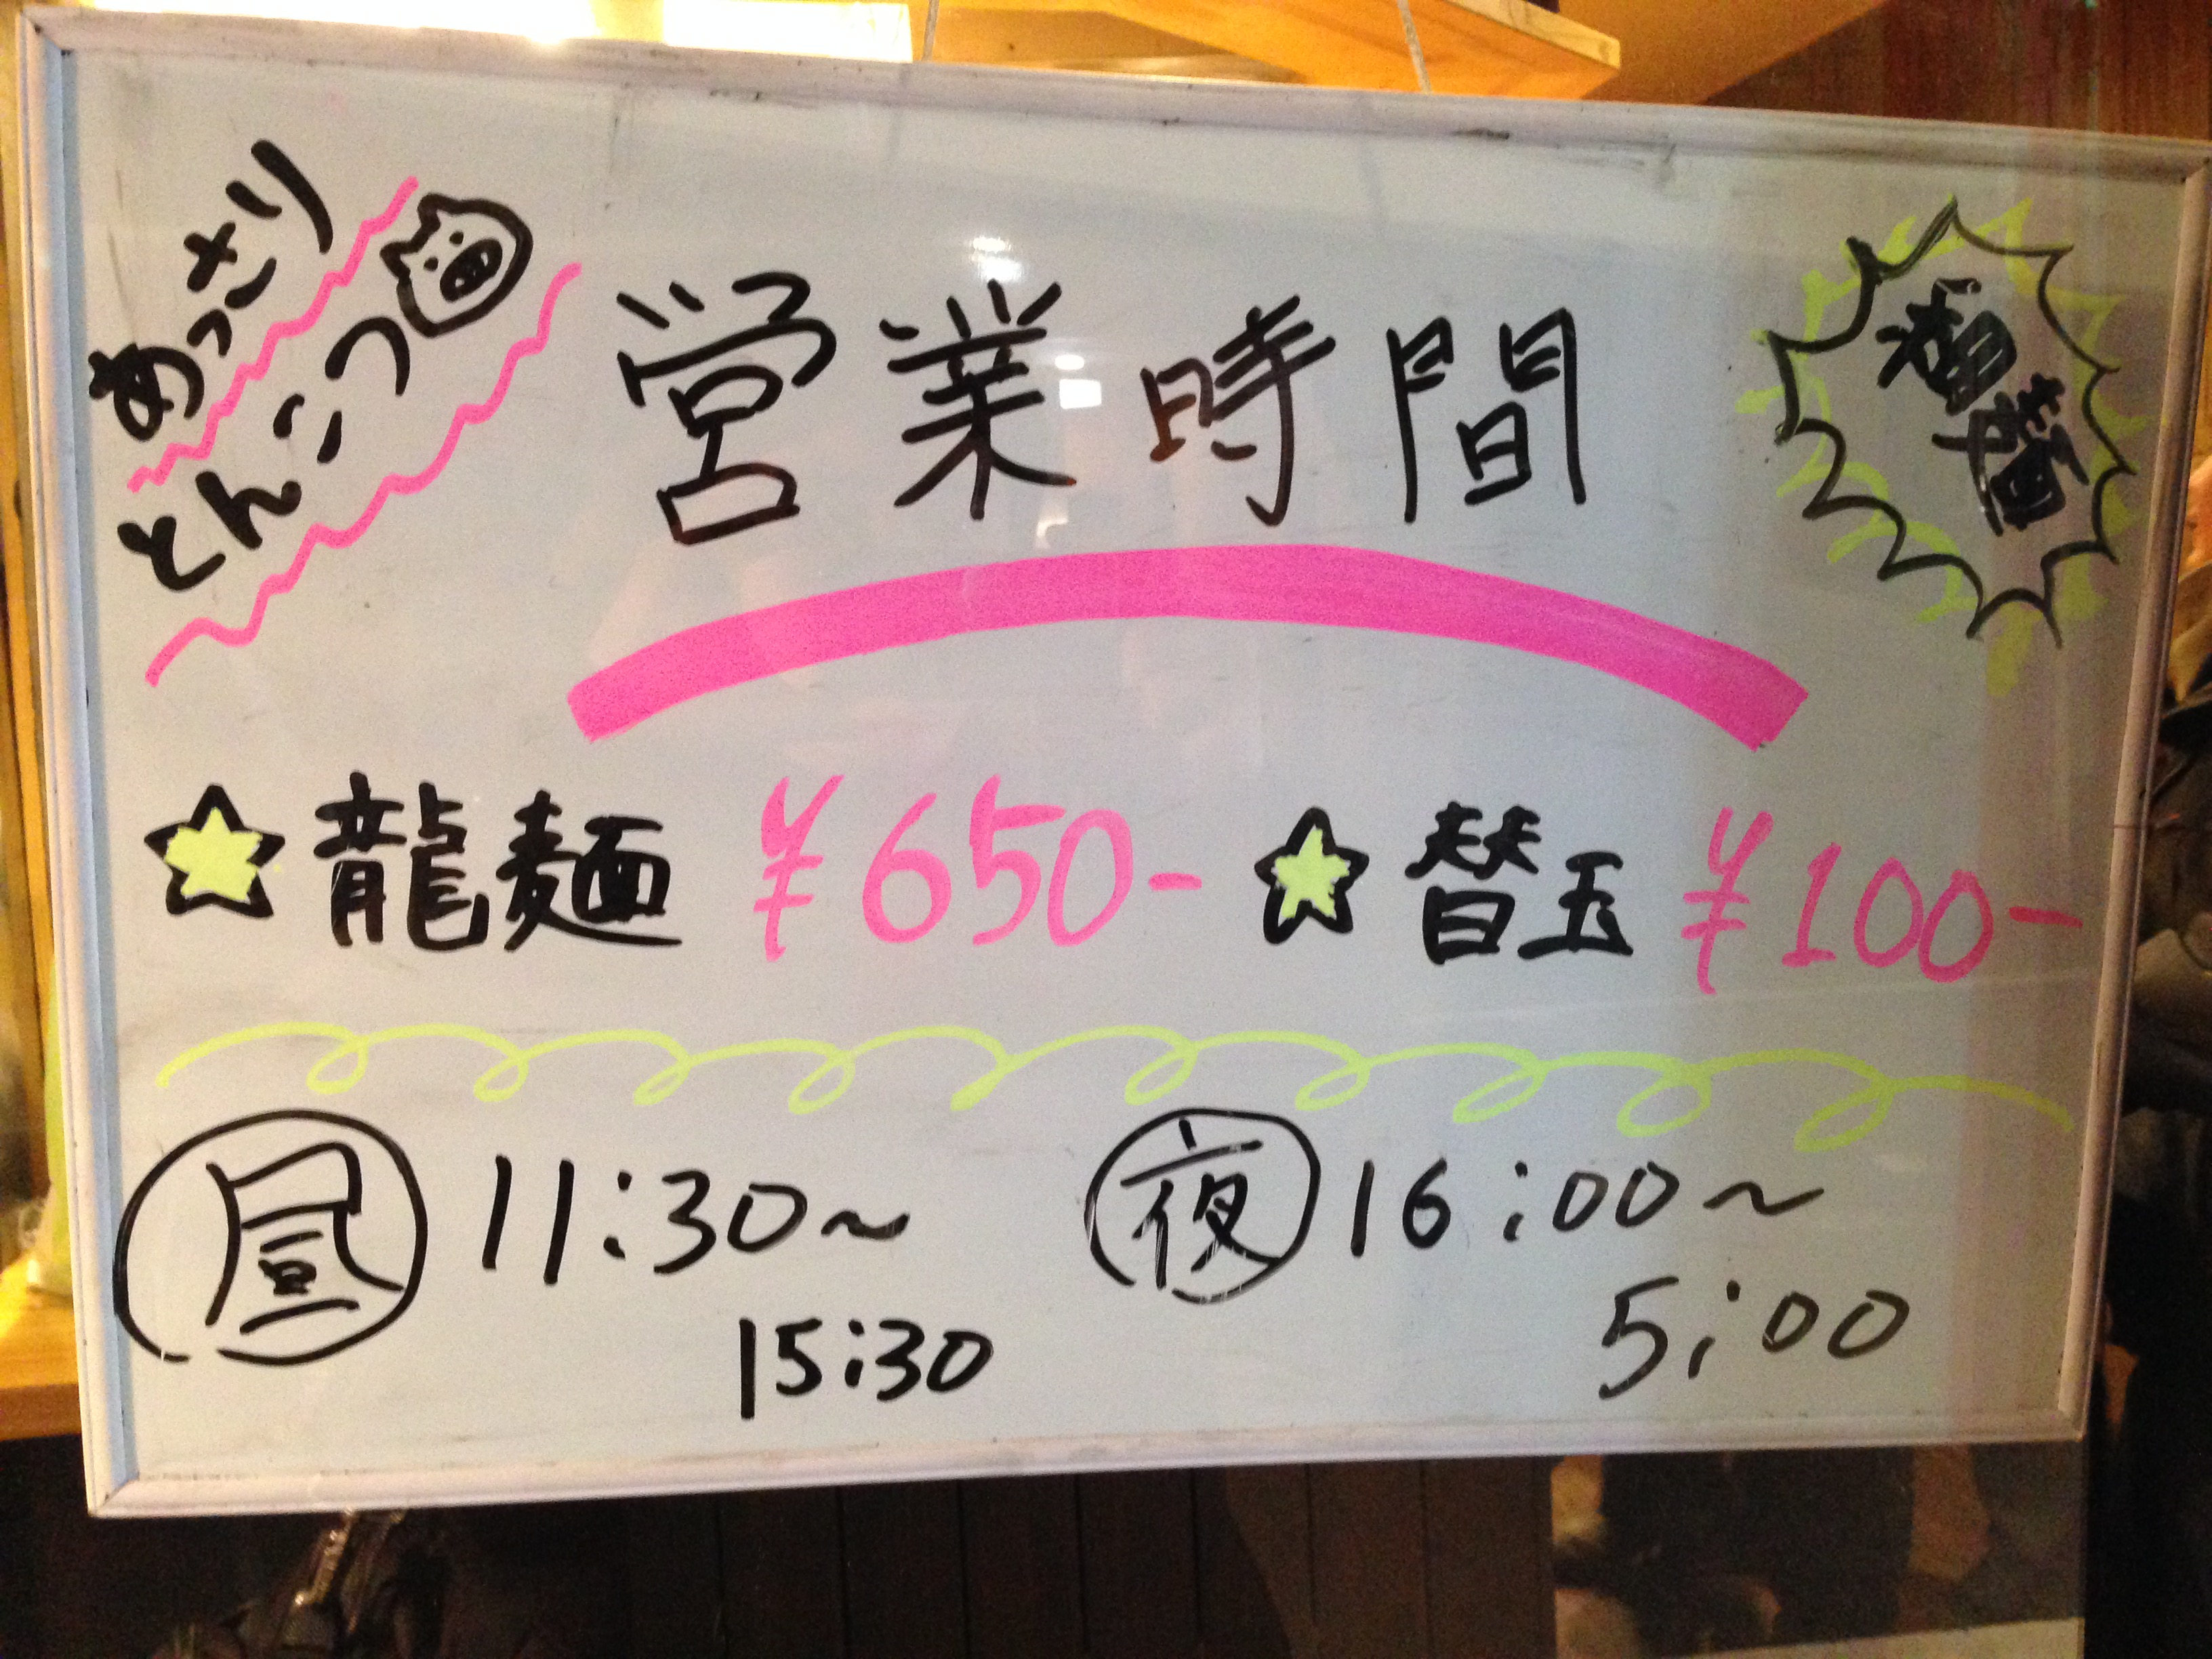 あっさり
とんこつ
営業時間
細麺
龍麺 ¥650- 替玉 ¥100-
昼 11:30~
15:30
夜 16:00~
5:00